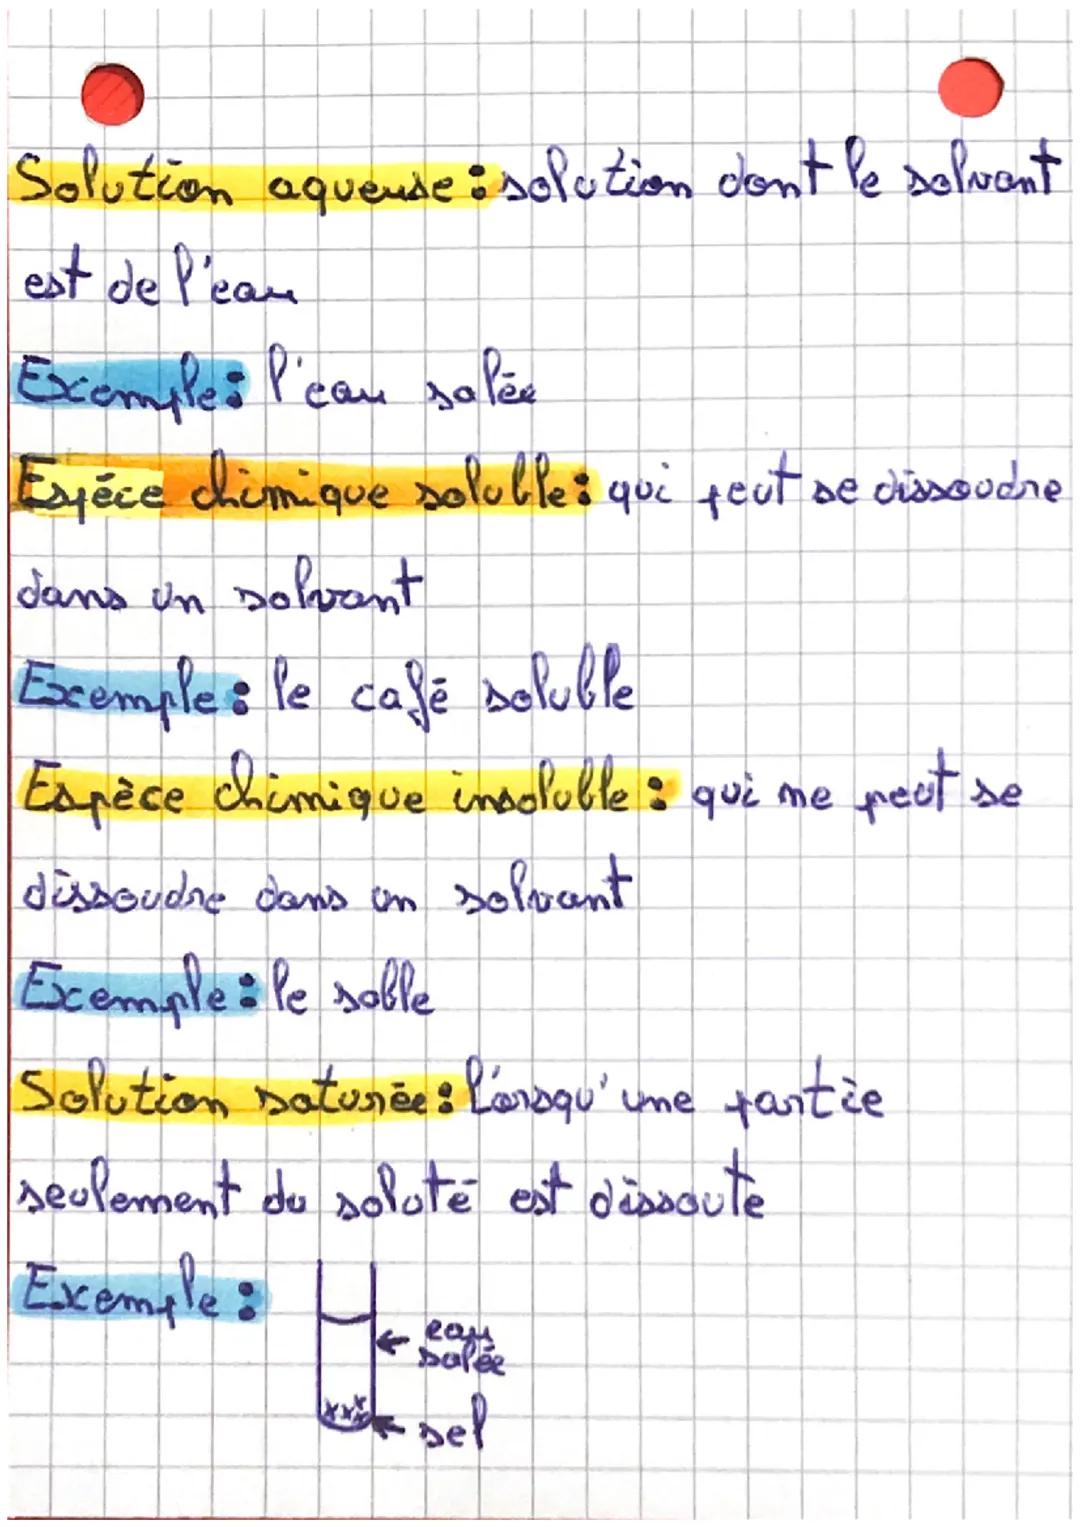 Solution aqueuse : solution dont le solvant
est de l'eau
Exemple : l'eau salée
Espéce chimique soluble : qui peut se dissoudre
dans un solvant
Exemple : le café soluble
Espèce chimique insoluble : qui ne peut se
dissoudre dans un solvant
Exemple : le sable
Solution saturée : lorsqu'une partie
seulement du soluté est dissoute
Exemple :
eau
salée
sel